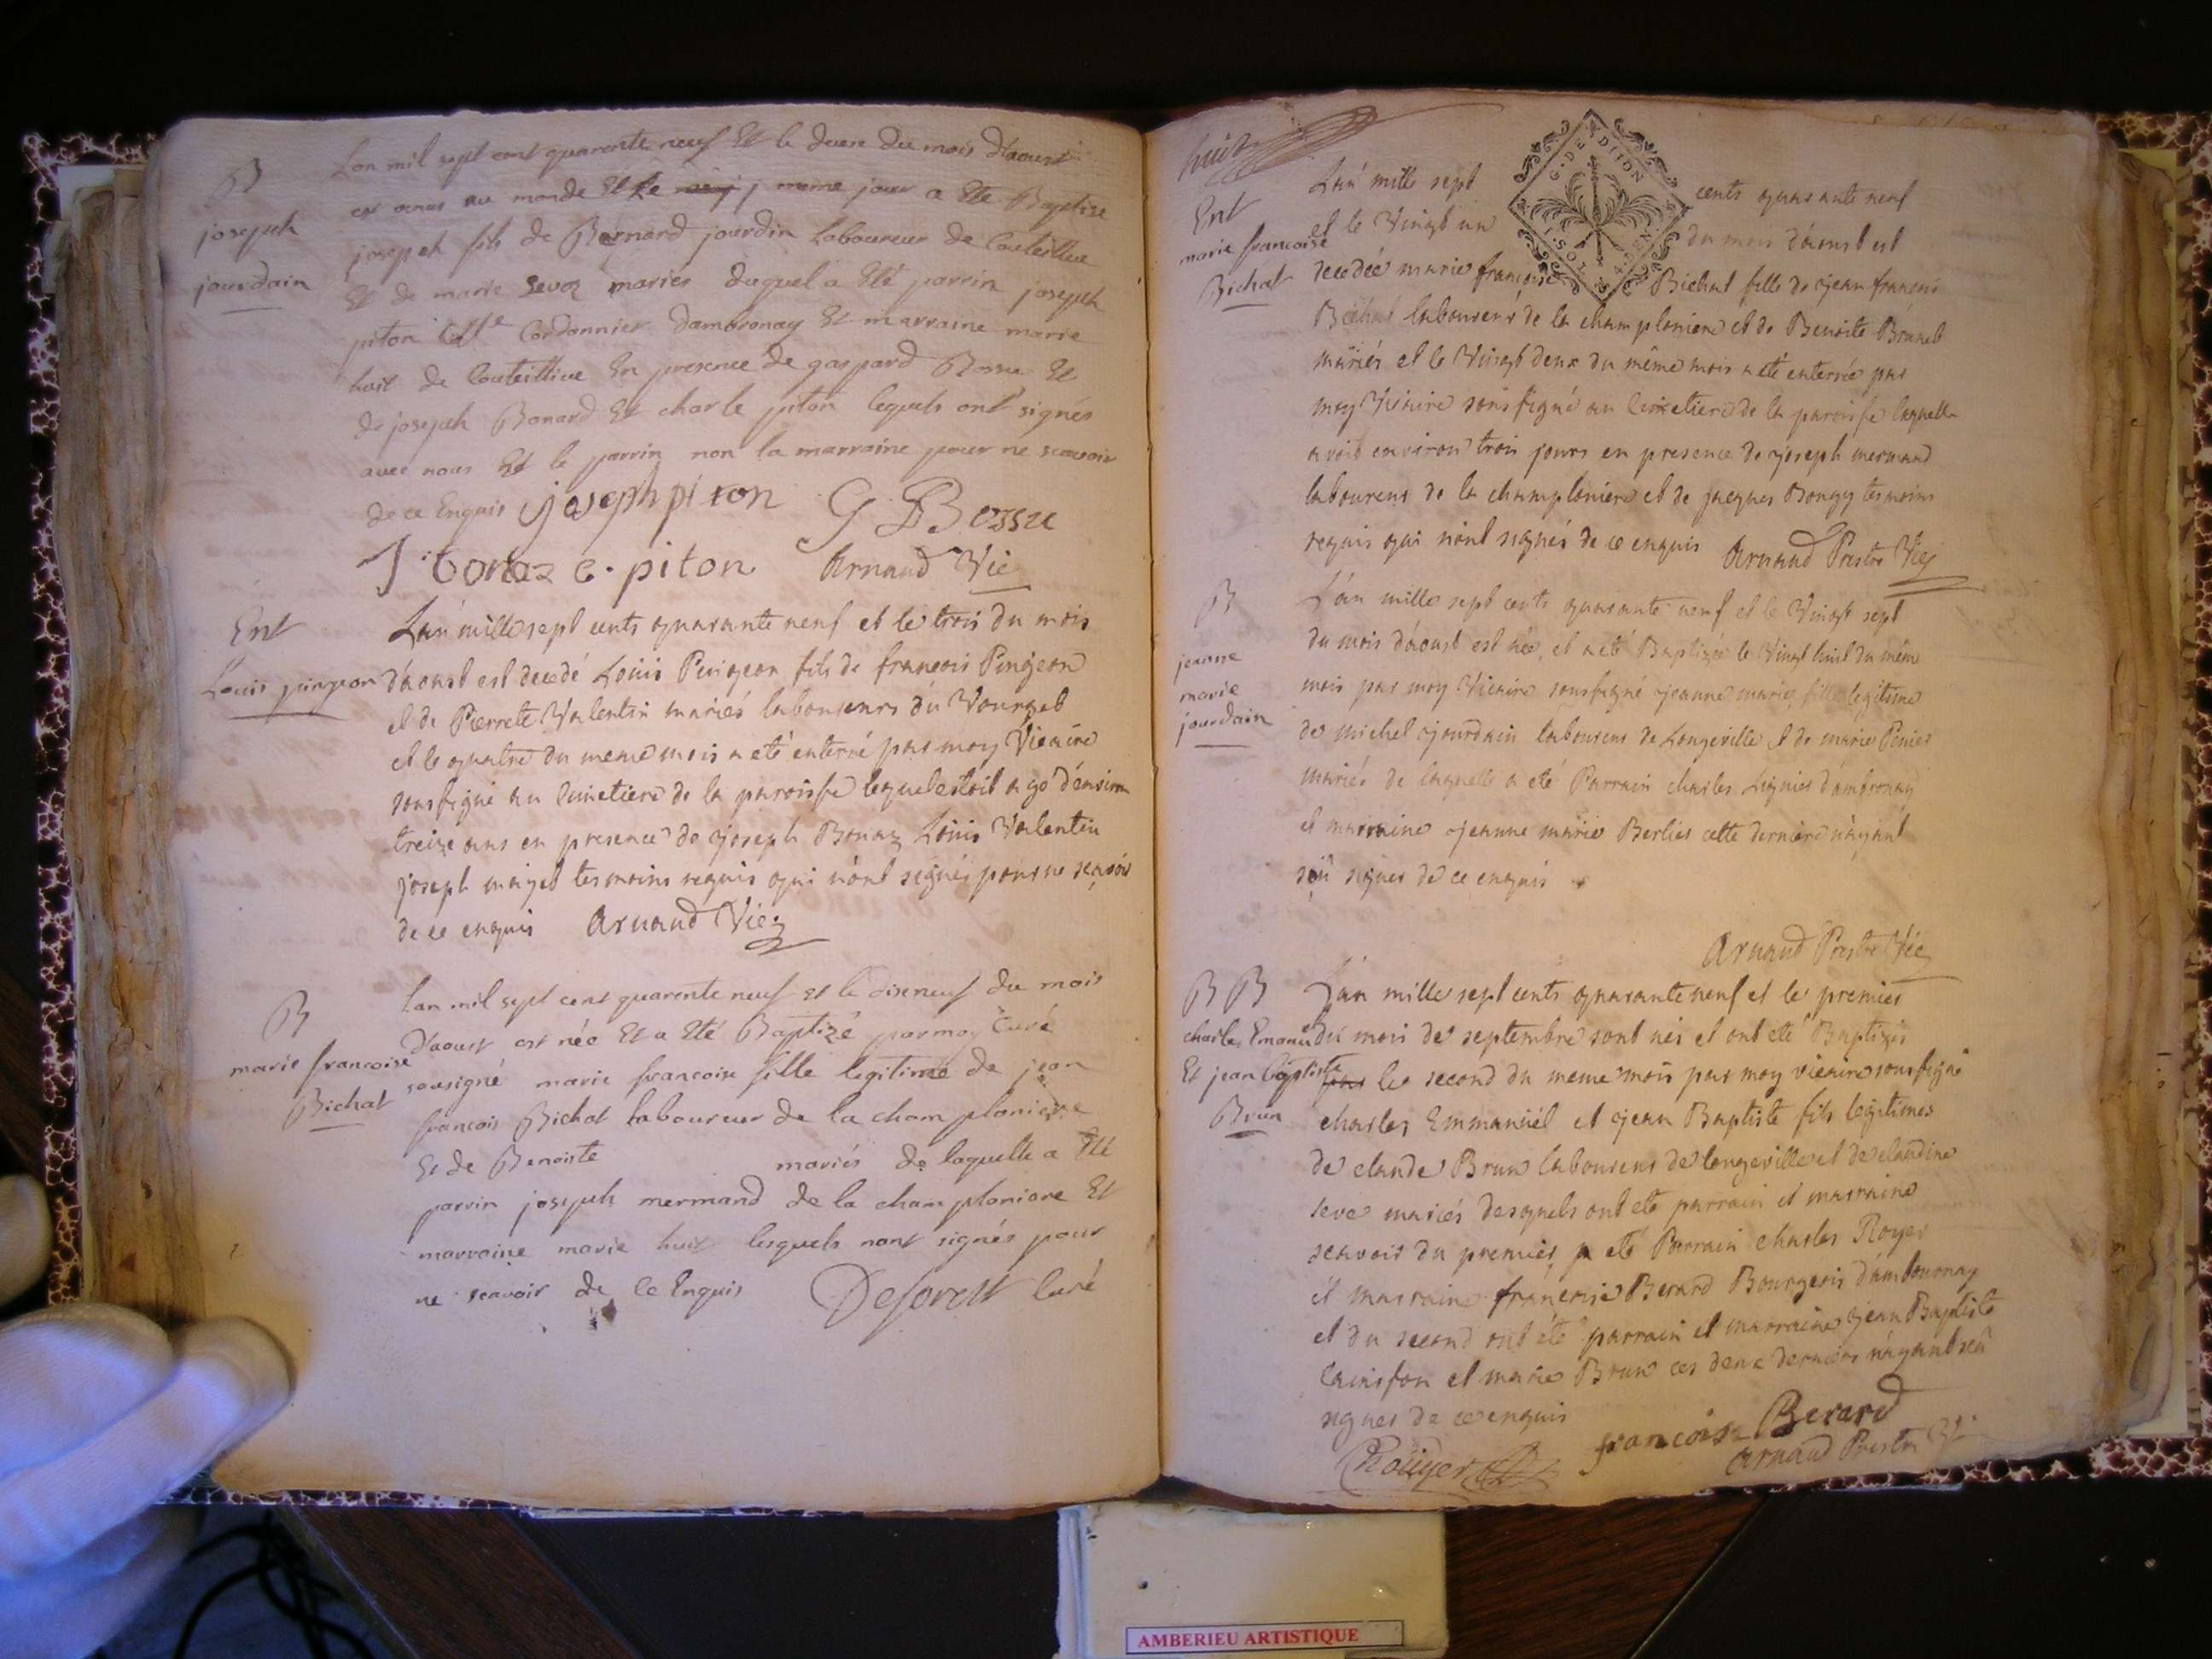 B
joseph
jourdain
Lan mil sept cent quarente neuf Et le du mois d'aoust
est venus au monde Et le meme jour a Eté Baptisé
joseph fils de Bernard jourdin Laboureur de Couteillieu
Et de marie Sevoz mariés duquel a Eté parrin joseph
piton Cordonnier dambronay Et marraine marie
huit de Couteillieu En presence de gaspard Bossu Et
de joseph Bonard Et charle piton lequels ont signés
avec nous Et le parrin non la marraine pour ne scavoir
de ce Enquis joseph piton G Bossu
J bonaz c. piton Arnaud Vic
Ent
Louis pingeon
L'an mille sept cents quarante neuf et le trois du mois
d'aoust est decedé Louis Pingeon fils de françois Pingeon
et de Pierrete Valentin mariés laboureurs du Vourget
et le quatre du meme mois a eté enterré par moy Vicaire
sousigné au Cimetiere de la paroisse lequel estoit agé d'environ
treize ans en presence de joseph Bonaz Louis Valentin
joseph mazet tesmoins requis qui n'ont signés pour ne scavoir
de ce enquis Arnaud Vic
B
marie francoise
Bichat
Lan mil sept cent quarente neuf et le disneuf du mois
d'aoust est née Et a Eté Baptizé par moy Curé
sousigné marie francoise fille legitime de jean
francois Bichat laboureur de la champloniere
Et de Benoiste mariés de laquelle a Eté
parrin joseph mermand de la champloniere Et
marraine marie huit lesquels nont signés pour
ne scavoir de ce Enquis Deforest Curé
huit
G. DE DIJON
Ent
marie francoise
Bichat
L'an mille sept cents quarante neuf
et le Vingt un du mois d'aoust est
decedée marie françoise Bichat fille de jean françois
Bichat laboureur de la champloniere et de Benoite Brunet
mariés et le Vingt deux du même mois a eté enterrée par
moy Vicaire sousigné au Cimetiere de la paroisse laquelle
avoit environ trois jours en presence de joseph mermand
laboureur de la champloniere et de jacques Bongy tesmoins
requis qui n'ont signés de ce enquis Arnaud Prestre Vic
B
jeanne
marie
jourdain
L'an mille sept cents quarante neuf et le Vingt sept
du mois d'aoust est née, et a eté Baptizée le Vingt huit du même
mois par moy Vicaire sousigné jeanne marie, fille legitime
de michel jourdain laboureur de Longeville et de marie
mariés de laquelle a eté Parrain charles d'ambronay
et marraine jeanne marie Berlier cette derniere n'ayant
sçu signer de ce enquis
Arnaud Prestre Vic
B B
charle Emanuel
Et jean Baptiste
Brun
L'an mille sept cents quarante neuf et le premier
du mois de septembre sont nés et ont eté Baptizés
le second du meme mois par moy vicaire sousigné
charles Emmanuël et jean Baptiste fils legitimes
de claude Brun laboureur de longeville et de claudine
seve mariés desquels ont eté parrain et marraine
scavoir du premier, a eté Parrain charles Royer
et marraine françoise Berard Bourgeois d'ambournay
et du second ont été parrain et marraine jean Baptiste
et marie Brun ces deux derniers n'ayant sçu
signer de ce enquis
francoise Berard
Roüyer Arnaud Prestre
AMBERIEU ARTISTIQUE